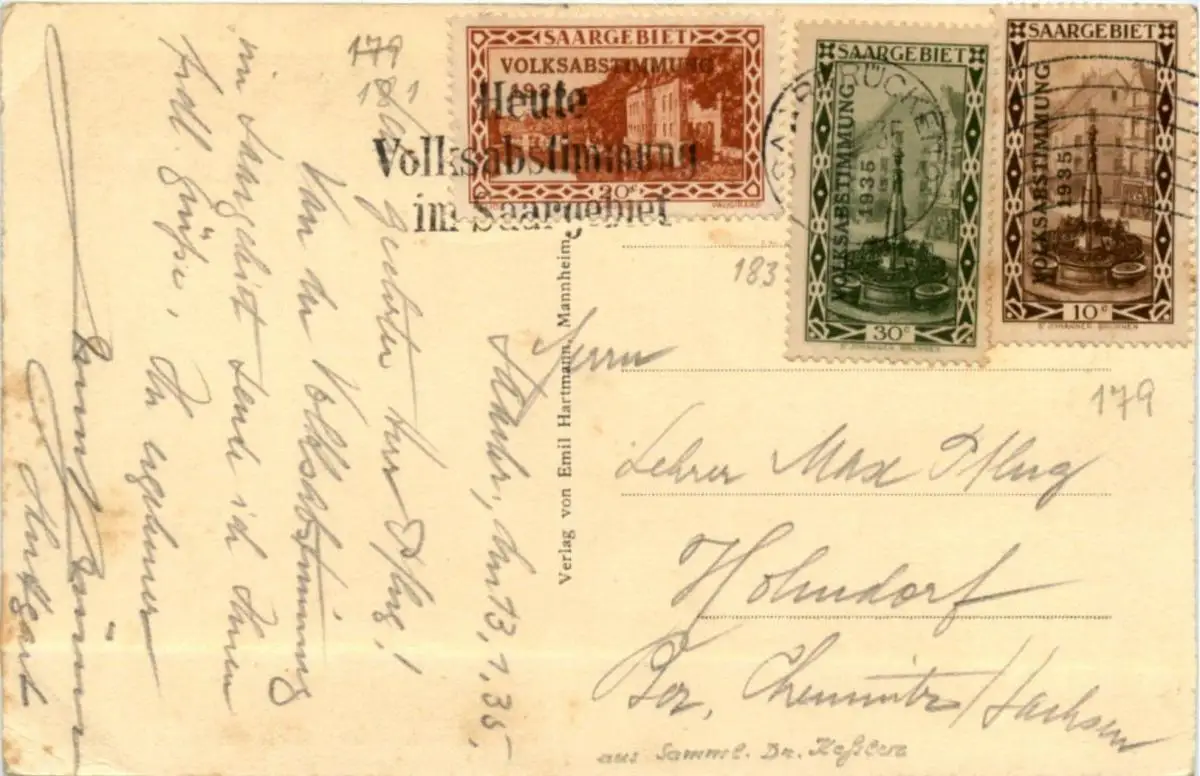 SAARGEBIET
VOLKSABSTIMMUNG
20c
SAARGEBIET
VOLKSABSTIMMUNG
1935
30c
SAARGEBIET
VOLKSABSTIMMUNG
1935
10c
Heute
Volksabstimmung
im Saargebiet
SAARBRÜCKEN
179
181
183
179
Verlag von Emil Hartmann, Mannheim
Saarbr, den 13, 1, 35,
geehrter Herr Pflug!
Von der Volksabstimmung
im Saargebiet sende ich Ihnen
frdl. Grüße, Ihr ergebener
Stuttgart
Herrn
Lehrer Max Pflug
Hohndorf
Bez, Chemnitz/Sachsen
aus Samml. Dr. Keßler